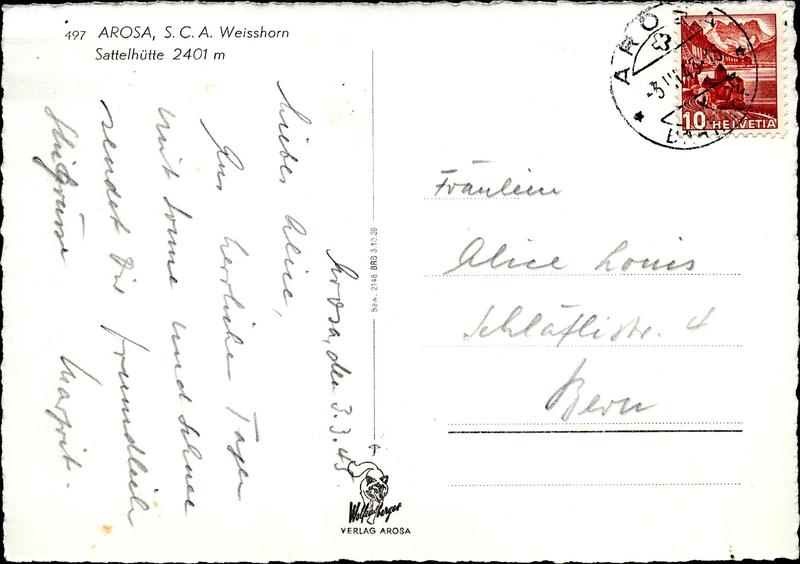 497 AROSA, S. C. A. Weisshorn
Sattelhütte 2401 m
AROSA
-3.III.43.
10 HELVETIA
Arosa, den 3.3.43
Liebes Alice,
Aus herrlichen Tagen
mit Sonne und Schnee
sendet Dir freundliche
Skigrüsse Margrit.
Bew. 2148 BRB 3.10.39
Fräulein
Alice Louis
Schläflistr. 4
Bern
VERLAG AROSA